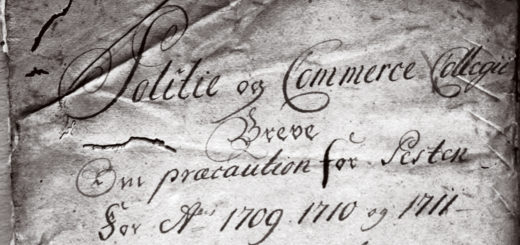 Politie og Commerce Collegii
Breve
Om præcaution for Pesten
For Aō 1709 1710 og 1711